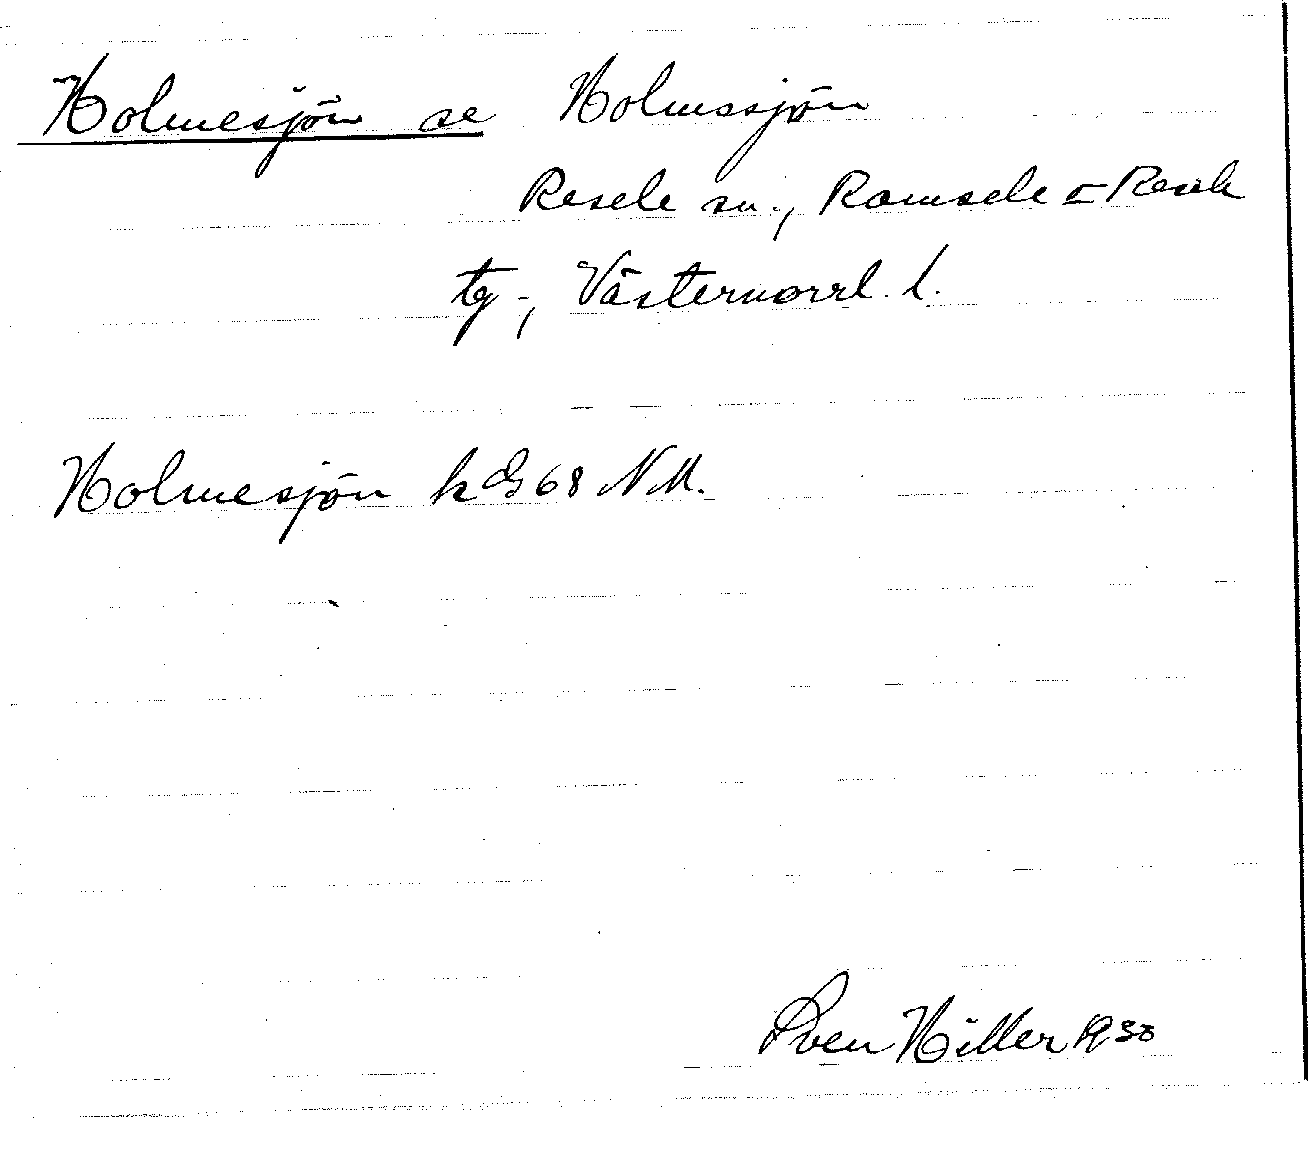 Holmesjön se Holmssjön
Resele sn., Ramsele o Resele
tg., Västernorrl. l.
Holmesjön k 68 NM.
Sven Hiller 1930